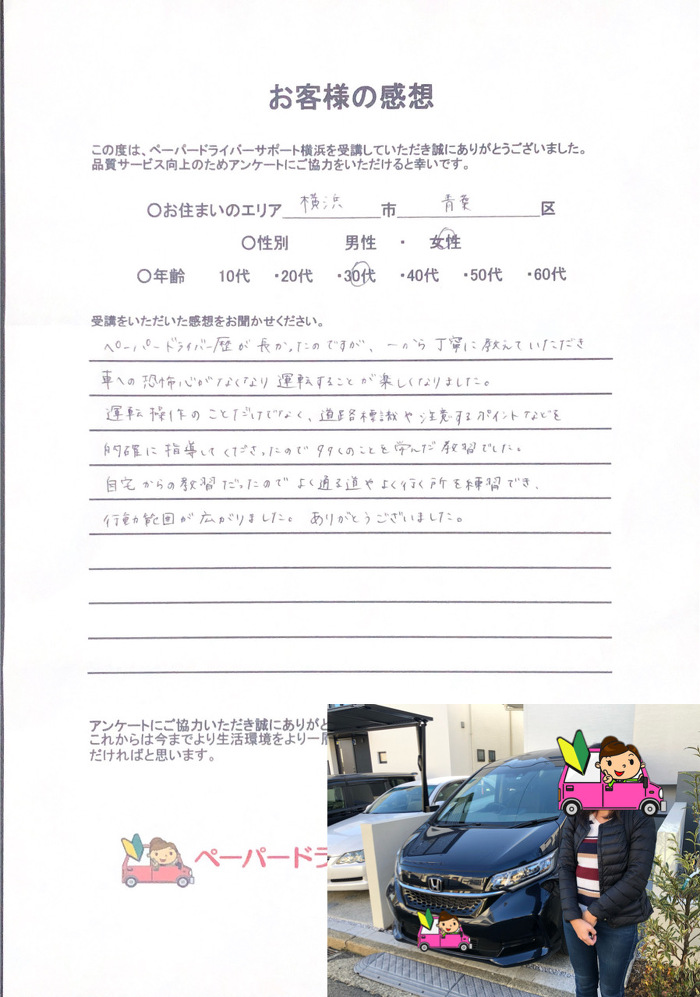 お客様の感想
この度は、ペーパードライバーサポート横浜を受講していただき誠にありがとうございました。
品質サービス向上のためアンケートにご協力をいただけると幸いです。
〇お住まいのエリア 横浜 市 青葉 区
〇性別 男性 ・ 女性
〇年齢 10代 ・20代 ・30代 ・40代 ・50代 ・60代
受講をいただいた感想をお聞かせください。
ペーパードライバー歴が長かったのですが、一から丁寧に教えていただき
車への恐怖心がなくなり運転することが楽しくなりました。
運転操作のことだけでなく、道路標識や注意するポイントなどを
的確に指導してくださったので多くのことを学んだ教習でした。
自宅からの教習だったのでよく通る道やよく行く所を練習でき、
行動範囲が広がりました。ありがとうございました。
アンケートにご協力いただき誠にありがと
これからは今までより生活環境をより一
だければと思います。
ペーパードラ